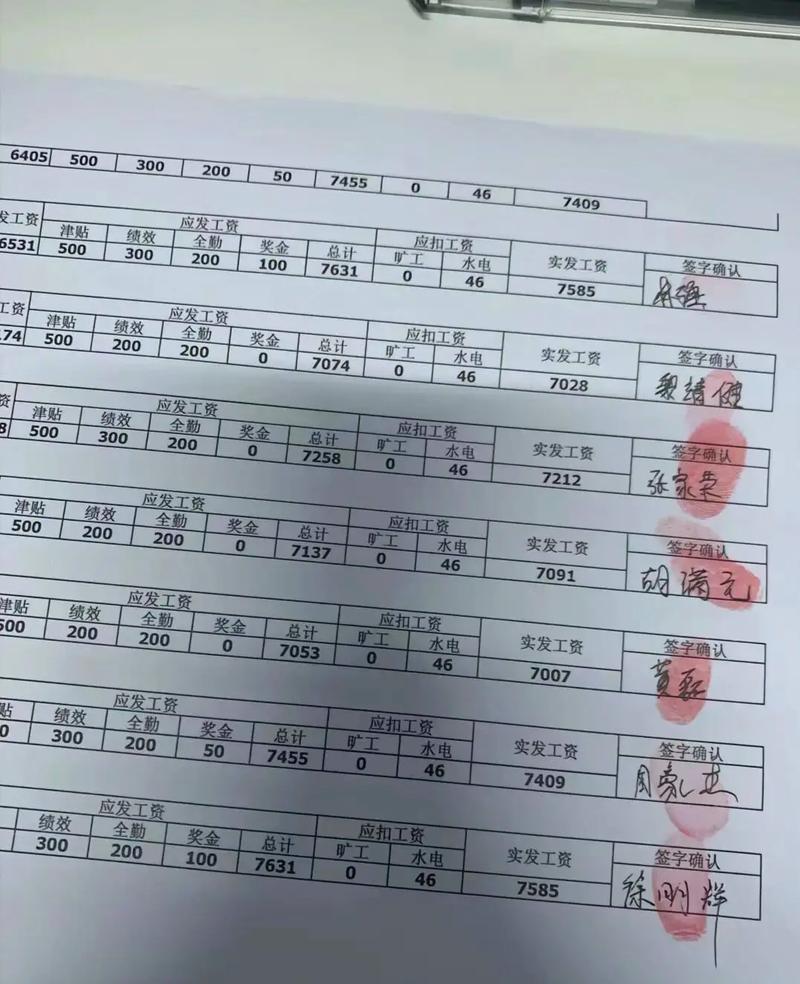 6405 500 300 200 50 7455 0 46 7409
发工资 应发工资 应扣工资 实发工资 签字确认
津贴 绩效 全勤 奖金 总计 旷工 水电
6531 500 300 200 100 7631 0 46 7585
工资 应发工资 应扣工资 实发工资 签字确认
津贴 绩效 全勤 奖金 总计 旷工 水电
174 500 200 200 0 7074 0 46 7028 靖健
资 应发工资 应扣工资 实发工资 签字确认
津贴 绩效 全勤 奖金 总计 旷工 水电
8 500 300 200 0 7258 0 46 7212 张家荣
应发工资 应扣工资 实发工资 签字确认
津贴 绩效 全勤 奖金 总计 旷工 水电
500 200 200 0 7137 0 46 7091 胡满元
应发工资 应扣工资 实发工资 签字确认
津贴 绩效 全勤 奖金 总计 旷工 水电
500 200 200 0 7053 0 46 7007 黄磊
应发工资 应扣工资 实发工资 签字确认
贴 绩效 全勤 奖金 总计 旷工 水电
0 300 200 50 7455 0 46 7409 周豪杰
应发工资 应扣工资 实发工资 签字确认
绩效 全勤 奖金 总计 旷工 水电
300 200 100 7631 0 46 7585 徐明辉